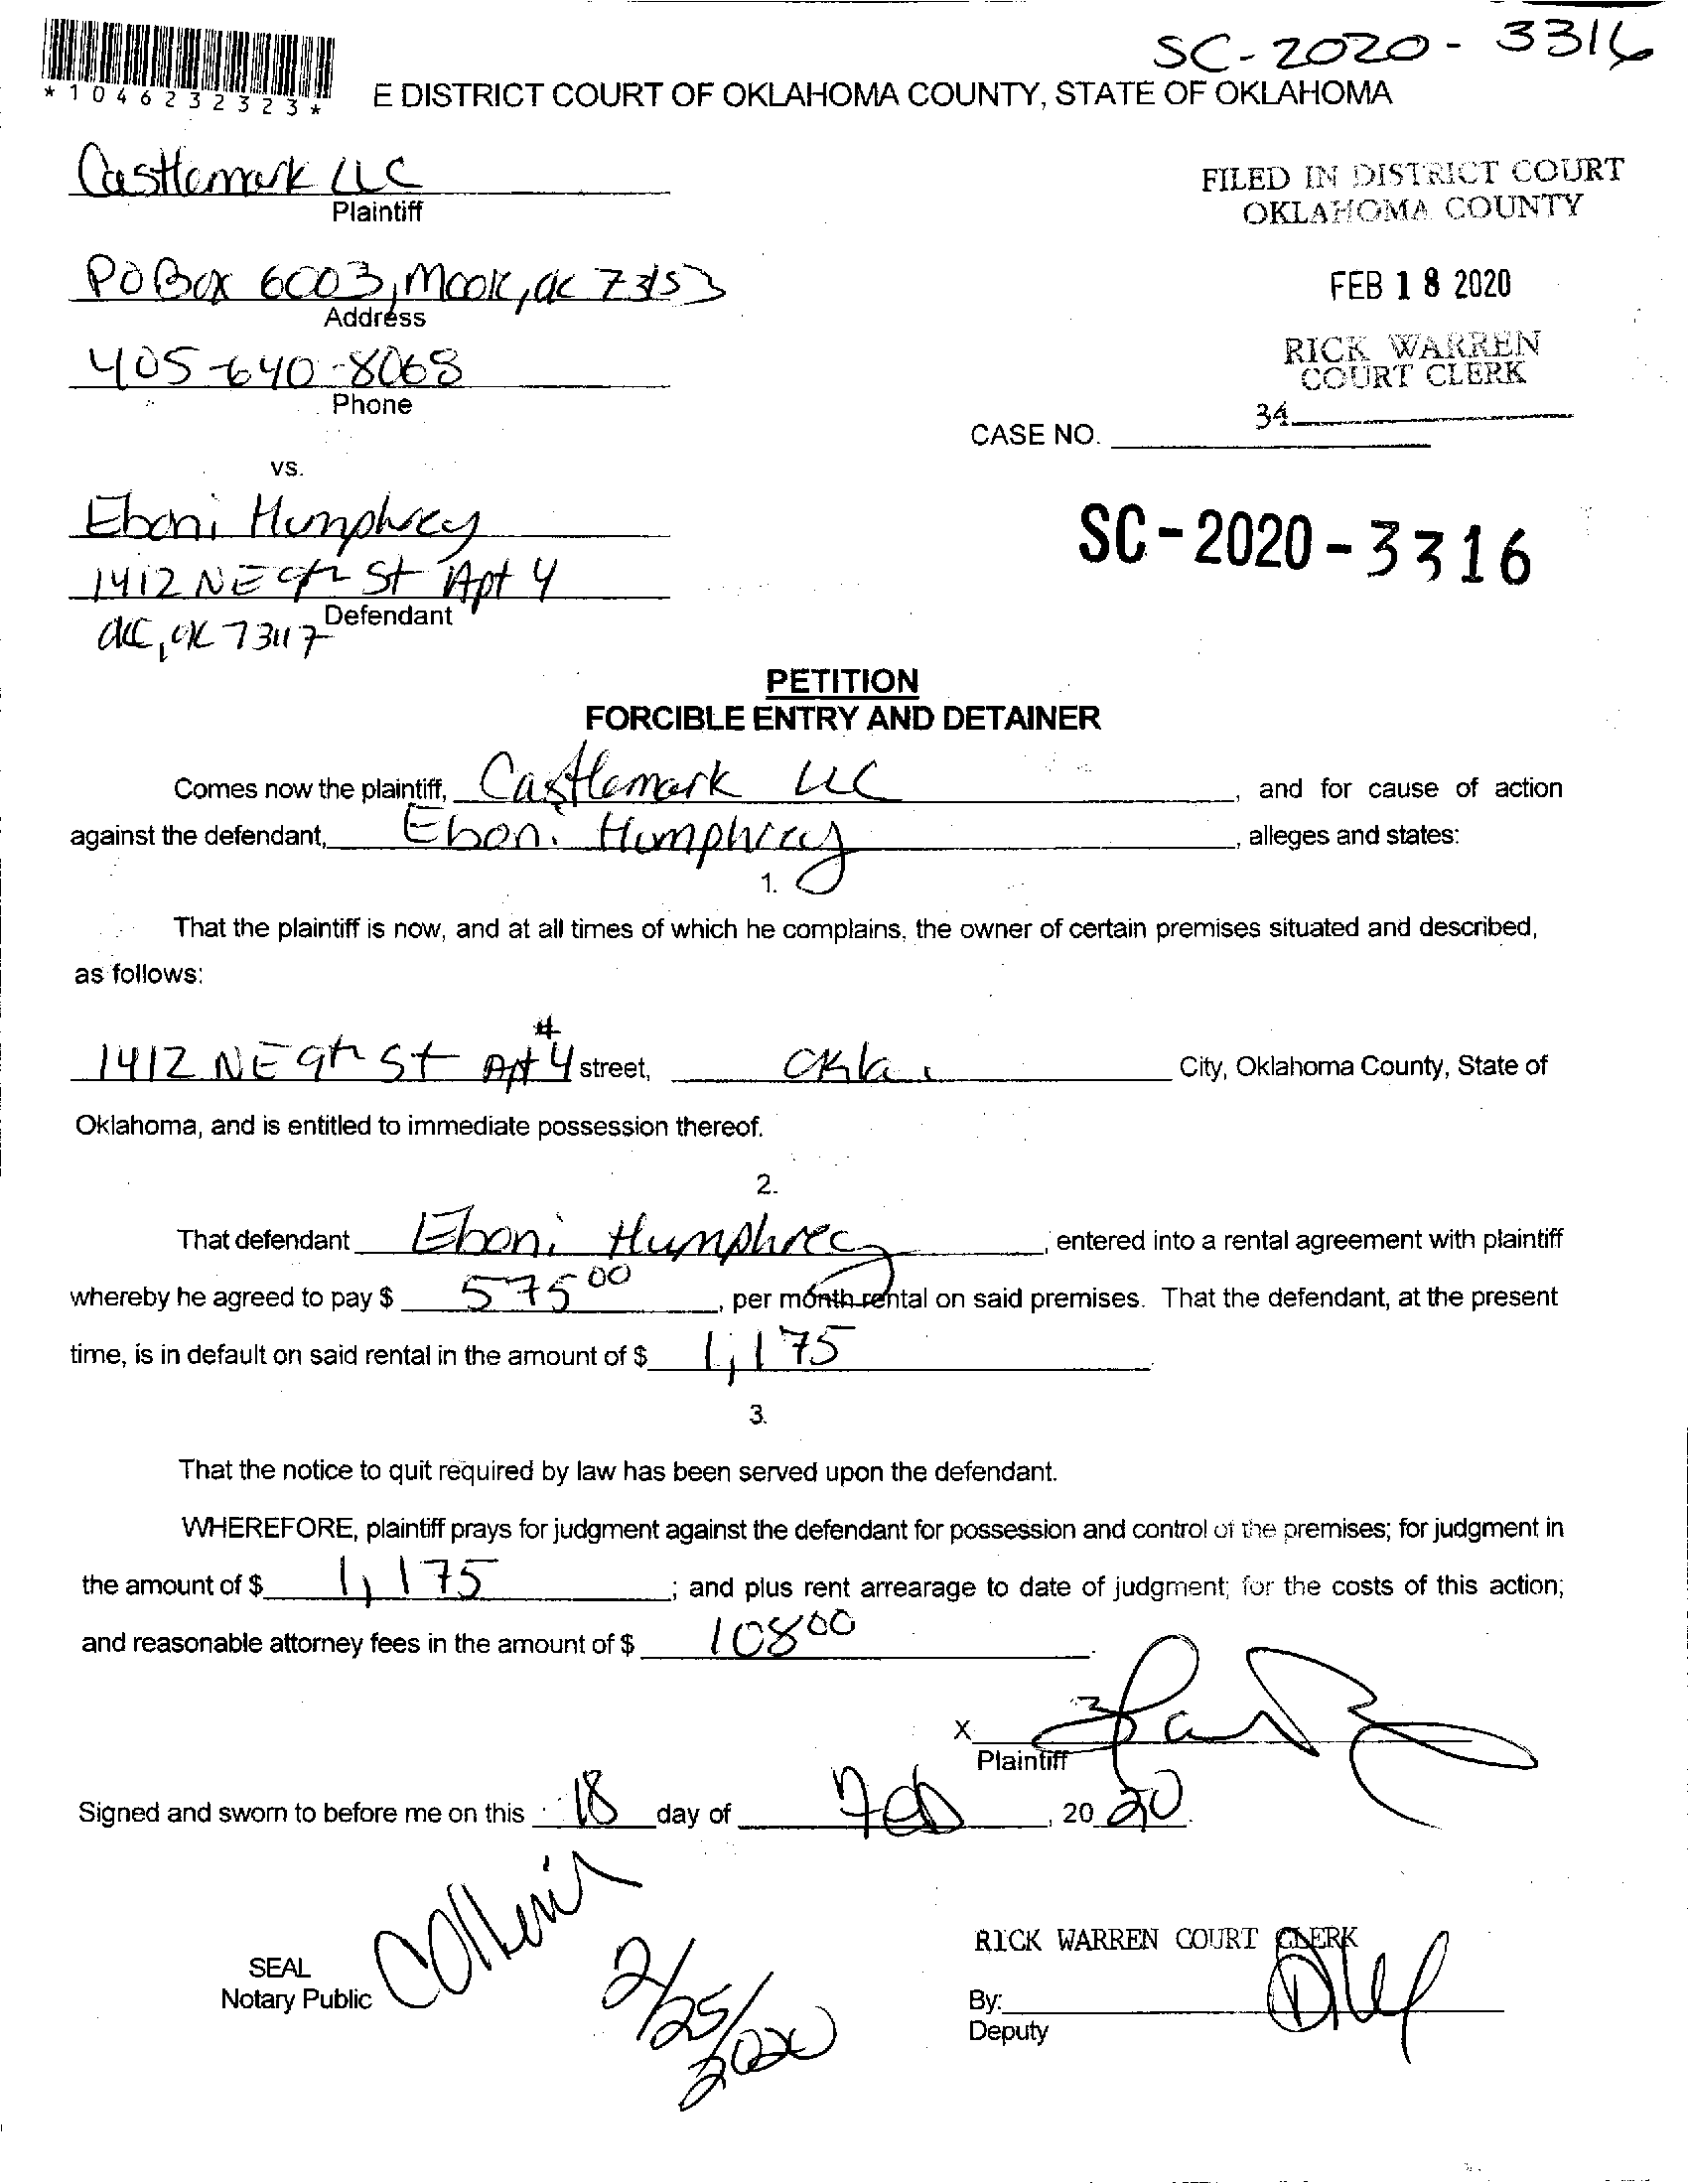 SC-2020-3316
*1046232323*
E DISTRICT COURT OF OKLAHOMA COUNTY, STATE OF OKLAHOMA
Castlemark LLC
Plaintiff
FILED IN DISTRICT COURT
OKLAHOMA COUNTY
PO Box 6003, Moore, OK 73153
Address
FEB 18 2020
405-640-8068
Phone
RICK WARREN
COURT CLERK
34
CASE NO.
vs.
Eboni Humphrey
1412 NE 9th St Apt 4
Defendant
OKC, OK 73117
SC-2020-3316
PETITION
FORCIBLE ENTRY AND DETAINER
Comes now the plaintiff, Castlemark LLC, and for cause of action
against the defendant, Eboni Humphrey, alleges and states:
1.
That the plaintiff is now, and at all times of which he complains, the owner of certain premises situated and described,
as follows:
1412 NE 9th St Apt #4 street, Okla City, Oklahoma County, State of
Oklahoma, and is entitled to immediate possession thereof.
2.
That defendant Eboni Humphrey, entered into a rental agreement with plaintiff
whereby he agreed to pay $ 575 00, per month rental on said premises. That the defendant, at the present
time, is in default on said rental in the amount of $ 1,175.
3.
That the notice to quit required by law has been served upon the defendant.
WHEREFORE, plaintiff prays for judgment against the defendant for possession and control of the premises; for judgment in
the amount of $ 1,175; and plus rent arrearage to date of judgment; for the costs of this action;
and reasonable attorney fees in the amount of $ 108 00.
X
Plaintiff
Signed and sworn to before me on this 18 day of Feb, 20 20.
SEAL
Notary Public
2/25/2020
RICK WARREN COURT CLERK
By:
Deputy